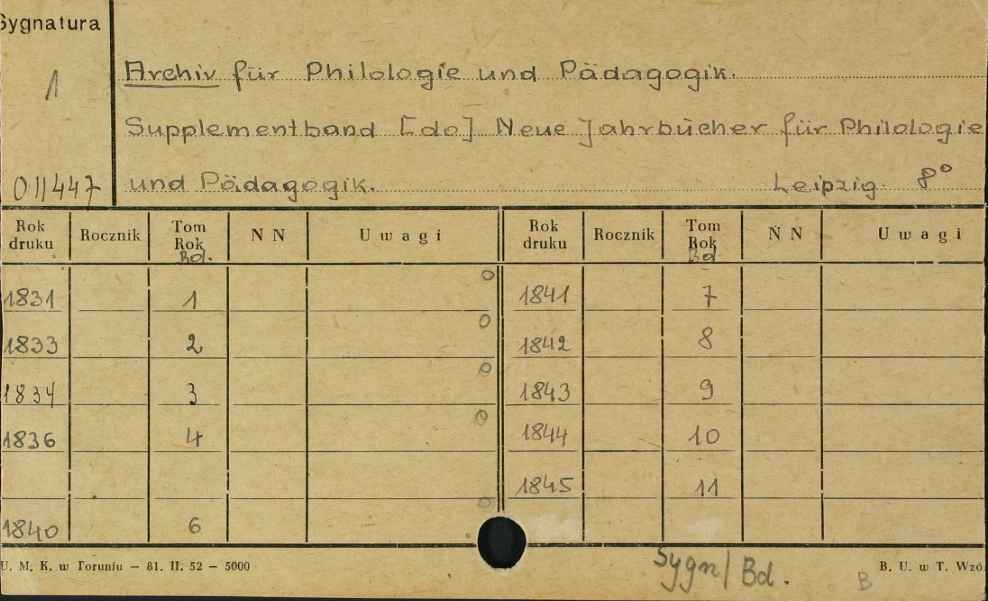 Sygnatura
1
011447
Archiv für Philologie und Pädagogik.
Supplementband [do] Neue Jahrbücher für Philologie
und Pädagogik. Leipzig. 8°
Rok druku Rocznik Tom Rok Bd. N N Uwagi Rok druku Rocznik Tom Rok Bd N N Uwagi
1831 1 0 1841 7
1833 2 0 1842 8
1834 3 0 1843 9
1836 4 0 1844 10
0 1845 11
1840 6
U. M. K. w Toruniu — 81. II. 52 — 5000
Sygn/Bd.
B
B. U. w T. Wzó